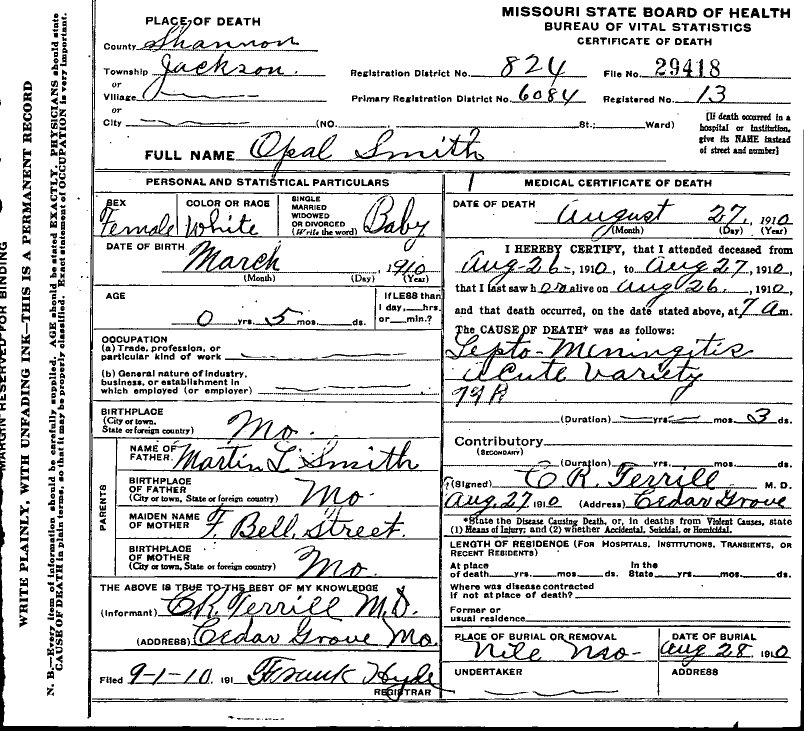 MISSOURI STATE BOARD OF HEALTH
BUREAU OF VITAL STATISTICS
CERTIFICATE OF DEATH
PLACE OF DEATH
County Shannon
Township Jackson.
or
Village
or
City (NO. , St.; Ward)
Registration District No. 824 File No. 29418
Primary Registration District No. 6084 Registered No. 13
[If death occurred in a
hospital or institution,
give its NAME instead
of street and number]
FULL NAME Opal Smith
PERSONAL AND STATISTICAL PARTICULARS
SEX
Female
COLOR OR RACE
White
SINGLE
MARRIED
WIDOWED
OR DIVORCED
(Write the word)
Baby
DATE OF BIRTH
March 1910
(Month) (Day) (Year)
AGE
0 yrs. 5 mos. ds.
If LESS than
1 day, hrs.
or min.?
OCCUPATION
(a) Trade, profession, or
particular kind of work
(b) General nature of industry,
business, or establishment in
which employed (or employer)
BIRTHPLACE
(City or town,
State or foreign country)
Mo.
PARENTS
NAME OF
FATHER Martin L. Smith
BIRTHPLACE
OF FATHER
(City or town, State or foreign country)
Mo.
MAIDEN NAME
OF MOTHER F. Bell, Street.
BIRTHPLACE
OF MOTHER
(City or town, State or foreign country)
Mo.
THE ABOVE IS TRUE TO THE BEST OF MY KNOWLEDGE
(Informant) C.R. Terrill M.D.
(ADDRESS) Cedar Grove Mo.
Filed 9-1-10. 191 Frank Hyde
REGISTRAR
MEDICAL CERTIFICATE OF DEATH
DATE OF DEATH
August 27, 1910
(Month) (Day) (Year)
I HEREBY CERTIFY, that I attended deceased from
Aug-26-, 1910, to Aug 27, 1910,
that I last saw her alive on Aug 26., 1910,
and that death occurred, on the date stated above, at 7 a m.
The CAUSE OF DEATH* was as follows:
Lepto-Meningitis
acute Variety
(Duration) yrs. mos. 3 ds.
Contributory
(SECONDARY)
(Duration) yrs. mos. ds.
(Signed) C R. Terrill M. D.
Aug. 27 1910 (Address) Cedar Grove
*State the Disease Causing Death, or, in deaths from Violent Causes, state
(1) Means of Injury; and (2) whether Accidental, Suicidal, or Homicidal.
LENGTH OF RESIDENCE (For Hospitals, Institutions, Transients, or
Recent Residents)
At place
of death yrs. mos. ds.
In the
State yrs. mos. ds.
Where was disease contracted
if not at place of death?
Former or
usual residence
PLACE OF BURIAL OR REMOVAL
Nile Mo-
DATE OF BURIAL
Aug 28 1910
UNDERTAKER
ADDRESS
MARGIN RESERVED FOR BINDING
WRITE PLAINLY, WITH UNFADING INK—THIS IS A PERMANENT RECORD
N. B.—Every item of information should be carefully supplied. AGE should be stated EXACTLY. PHYSICIANS should state
CAUSE OF DEATH in plain terms, so that it may be properly classified. Exact statement of OCCUPATION is very important.